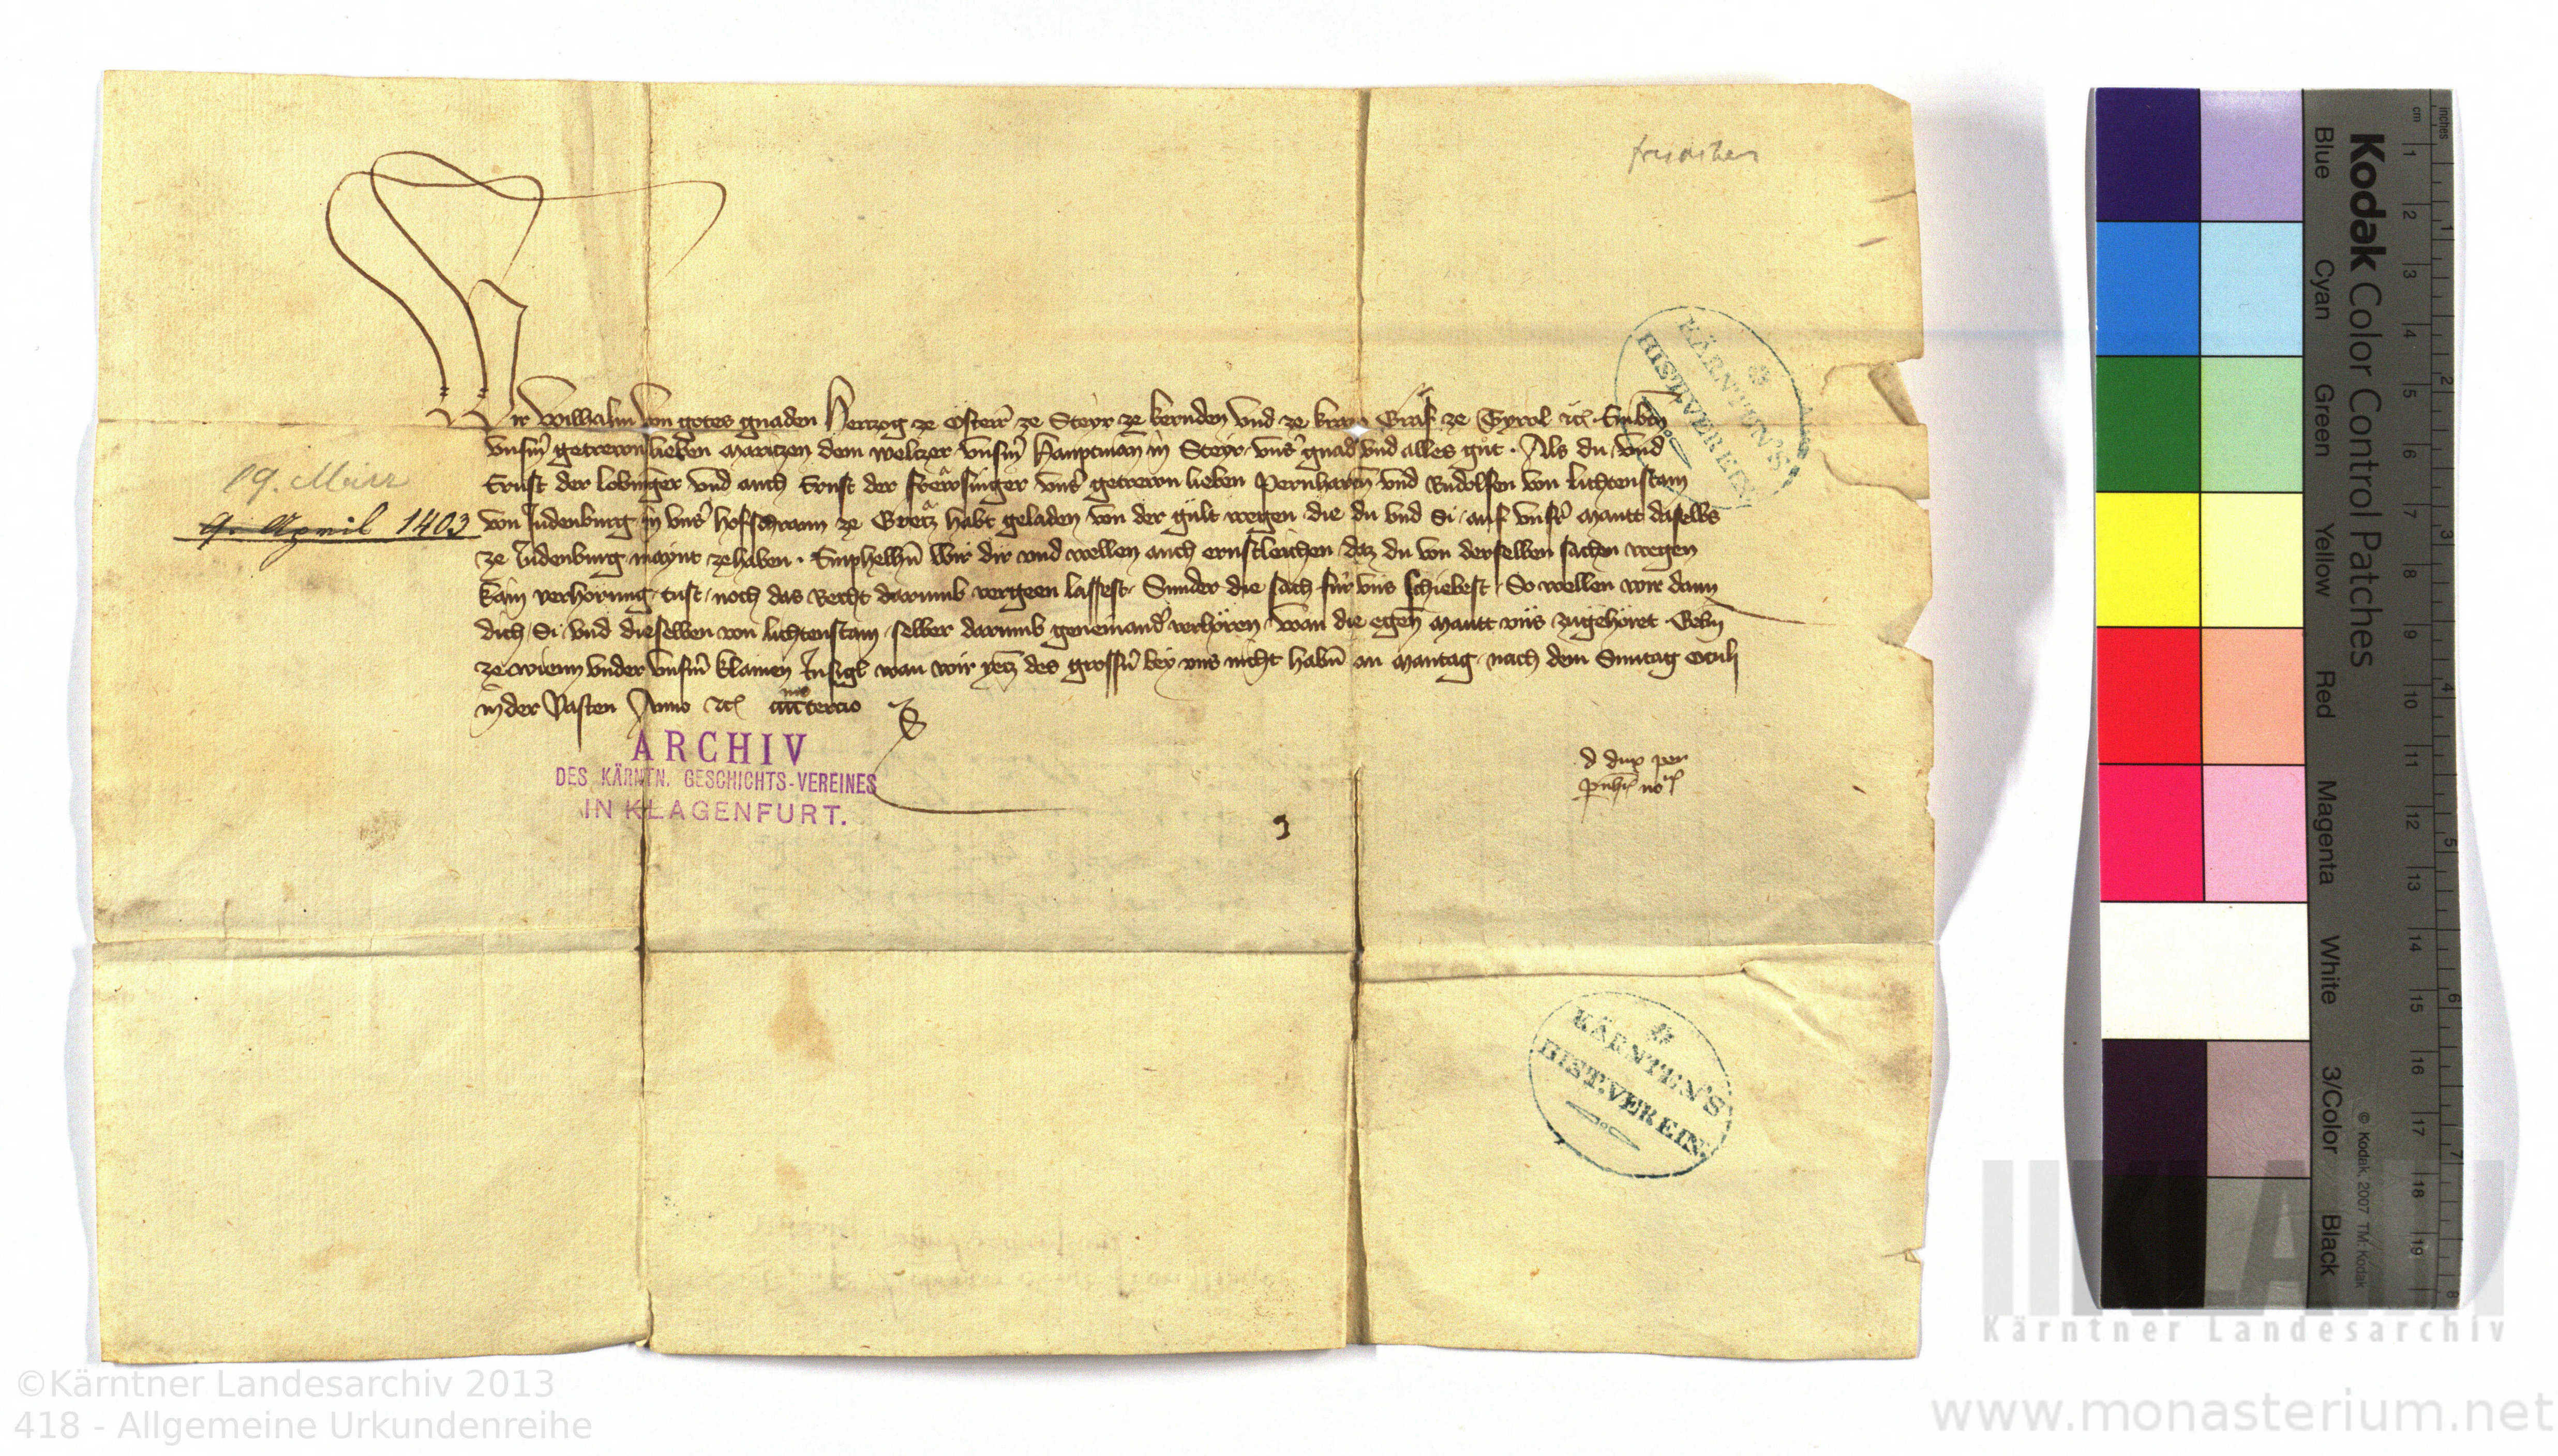 Wir Wilhalm von gotes gnaden Herczog ze Osterr̄ ze Steyr ze kernden vnd ze krain Graf ze Tyrol etc̄ Embietn̄
vnserm̄ getrewn lieben Mariczen dem welczer vnserm̄ Hauptman̄ in Steyr vnser̄ gnad vnd alles gůt. Als du vnd
Ernst der lobinger vnd auch Ernst der vnser̄ getrewn lieben Pernharten vnd Rudolfen von liechtenstain
von Judenburg in vnser̄ hofschrann ze Gretz habt geladen von der gült wegen die du vnd Si auf vnsrer̄ Mautt daselbs
ze Judenburg maynt zehaben. Emphelhn̄ wir dir vnd wellen auch ernstleichen daz du von derselben sachen wegen
kain verhörung tust noch das Recht darumb vergeen lassest Sunder die sach für vns schiebest So wellen wir dann
dich Si vnd dieselben von liechtenstain selber darumb geneinander̄ verhören wan die egen̄ Mautt vns zugehöret Gebn̄
ze wienn vnder vnserm̄ klainen Insigl wan wir yecz des grossen̄ bey vns nicht habn̄ an Mantag nach dem Sunntag Oculi
in der Vasten Anno etc̄ terciо
d dux per
19. März
9. April 1403
3
KÄRNTEN'S
HIST.VEREIN.
ARCHIV
DES KÄRNTN. GESCHICHTS-VEREINES
IN KLAGENFURT.
KÄRNTEN'S
HIST.VEREIN.
Kodak Color Control Patches
Blue Cyan Green Yellow Red Magenta White 3/Color Black
cm 1 2 3 4 5 6 7 8 9 10 11 12 13 14 15 16 17 18 19
inches 1 2 3 4 5 6 7 8
© Kodak, 2007 TM: Kodak
KLA
Kärntner Landesarchiv
©Kärntner Landesarchiv 2013
418 - Allgemeine Urkundenreihe
www.monasterium.net